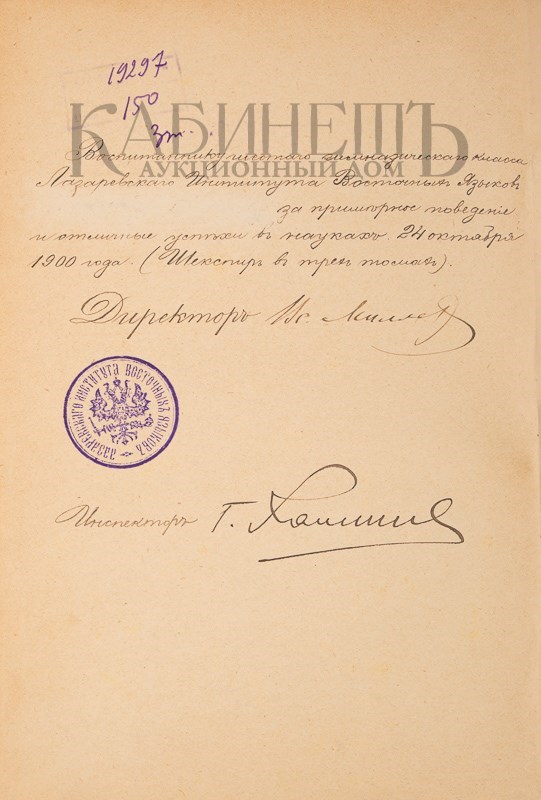 19297
150
3т.
КАБИНЕТЪ
АУКЦИОННЫЙ ДОМ
Воспитаннику шестого гимназическаго класса
Лазаревскаго Института Восточныхъ Языковъ
за примѣрное поведеніе
и отличные успѣхи въ наукахъ 24 октября
1900 года. (Шекспиръ въ трехъ томахъ).
Директоръ Вс. Миллер
ЛАЗАРЕВСКАГО ИНСТИТУТА ВОСТОЧНЫХЪ ЯЗЫКОВЪ
Инспекторъ Г.